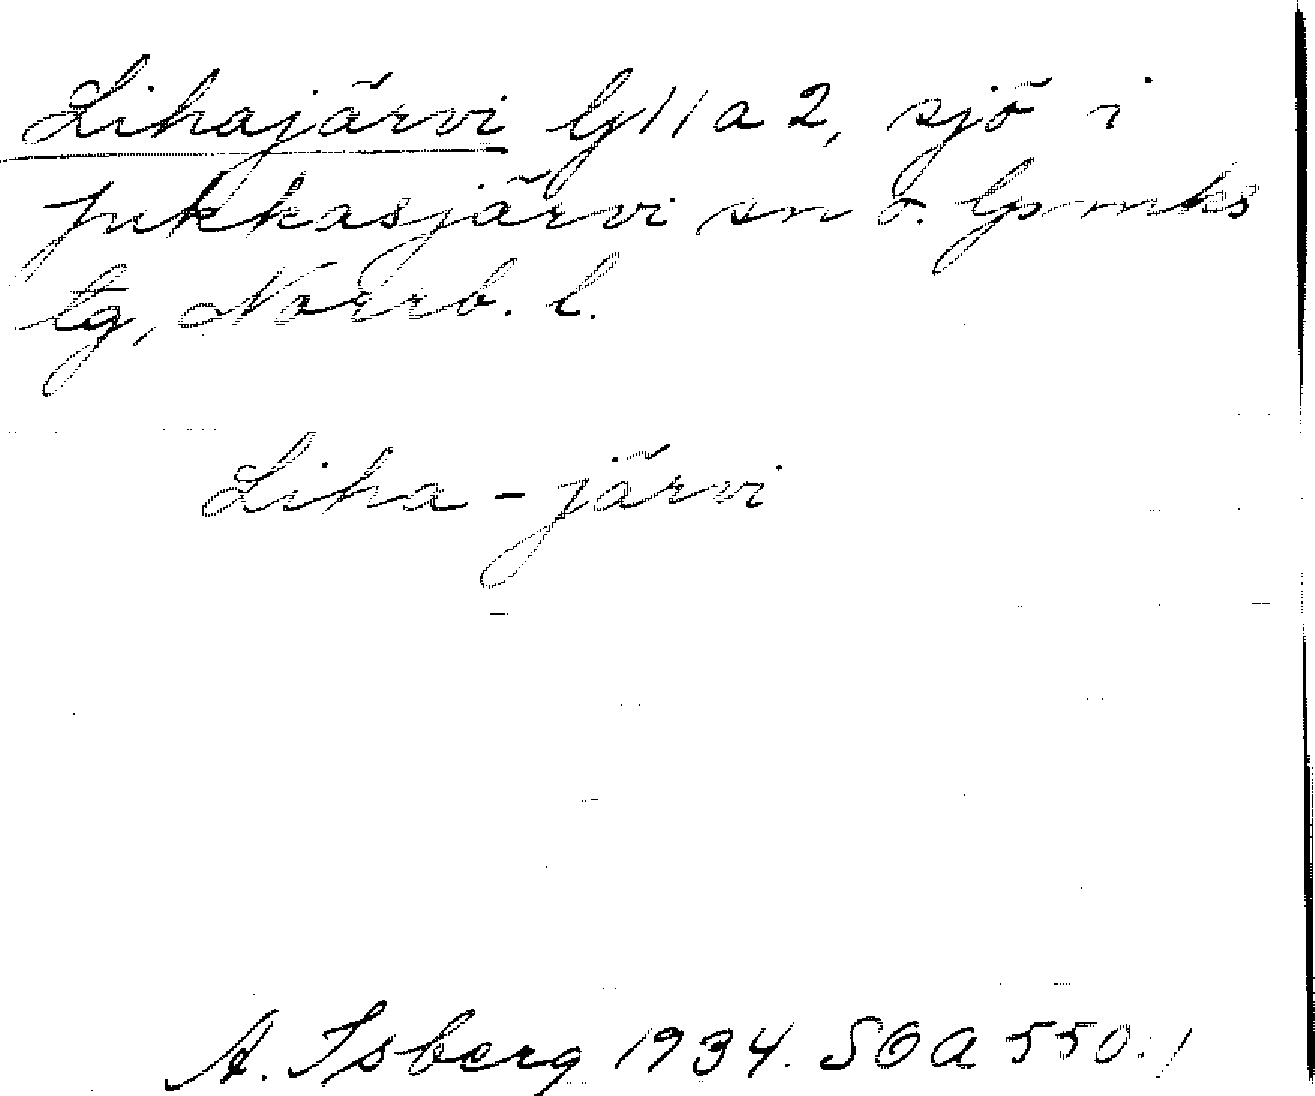 Lihajärvi G11a2, sjö i
Jukkasjärvi sn o. lpmks
tg, Norrb. l.
Liha-järvi
A. Isberg 1934. SOA 550:1